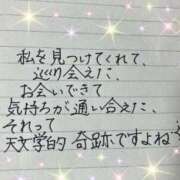 私を見つけてくれて、
巡り会えた、
お会いできて
気持ちが通い合えた、
それって
天文学的 奇跡ですよね